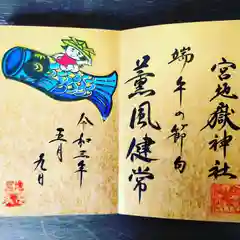 宮地嶽神社
端午の節句
薫風健常
令和三年
五月
元日